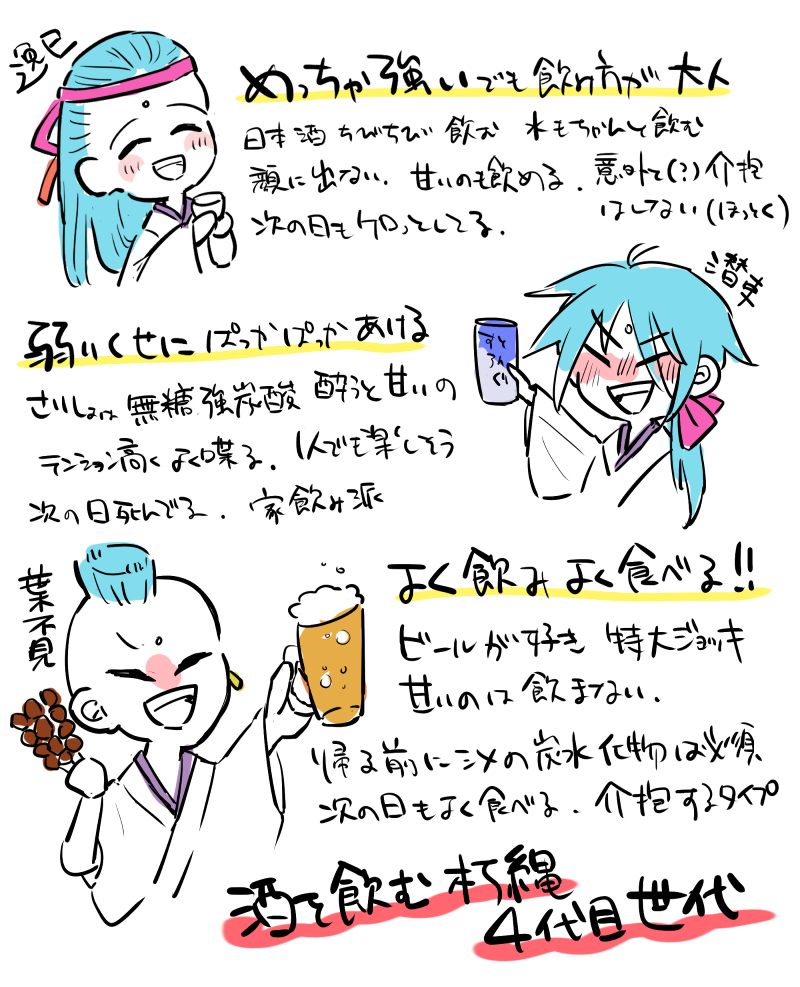 逸巳
めっちゃ強いでも飲み方が大人
日本酒ちびちび飲む 水もちゃんと飲む
顔に出ない. 甘いのも飲める. 意外と(?)介抱
はしない(ほっとく)
次の日もケロッとしてる.
潜東
すとろんぐ
弱いくせにぱっかぱっかあける
さいしょは無糖強炭酸 酔うと甘いの
テンション高くよく喋る. 1人でも楽しそう
次の日死んでる. 家飲み派
葉不見
よく飲みよく食べる!!
ビールが好き 特大ジョッキ
甘いのは飲まない.
帰る前にシメの炭水化物は必須
次の日もよく食べる. 介抱するタイプ
酒を飲む朽縄
4代目世代